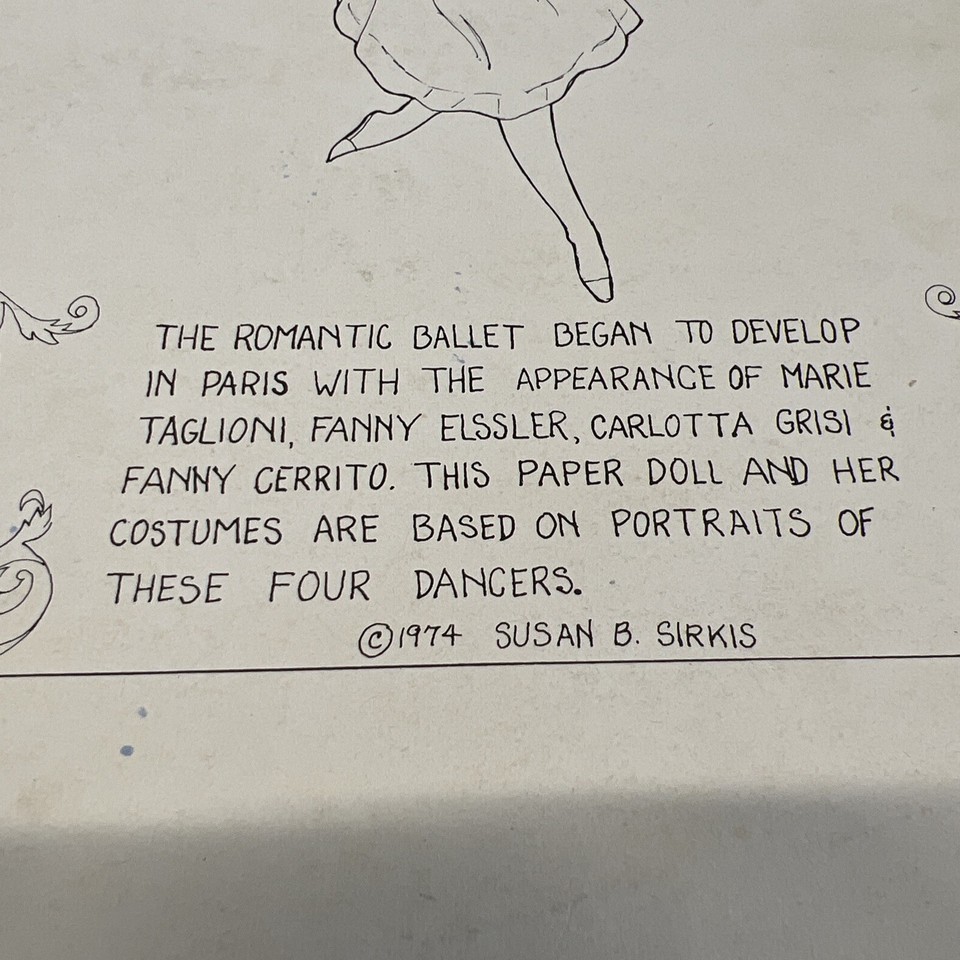 THE ROMANTIC BALLET BEGAN TO DEVELOP
IN PARIS WITH THE APPEARANCE OF MARIE
TAGLIONI, FANNY ELSSLER, CARLOTTA GRISI &
FANNY CERRITO. THIS PAPER DOLL AND HER
COSTUMES ARE BASED ON PORTRAITS OF
THESE FOUR DANCERS.
©1974 SUSAN B. SIRKIS